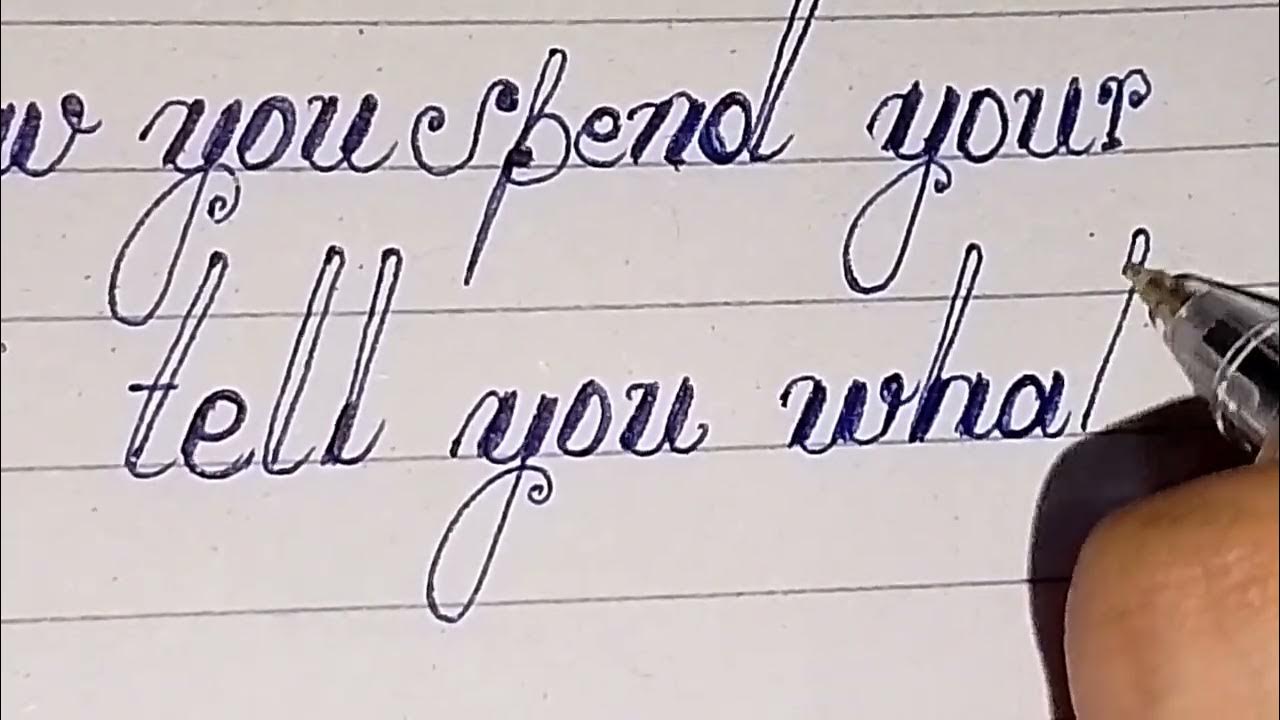 w you spend your
tell you wha